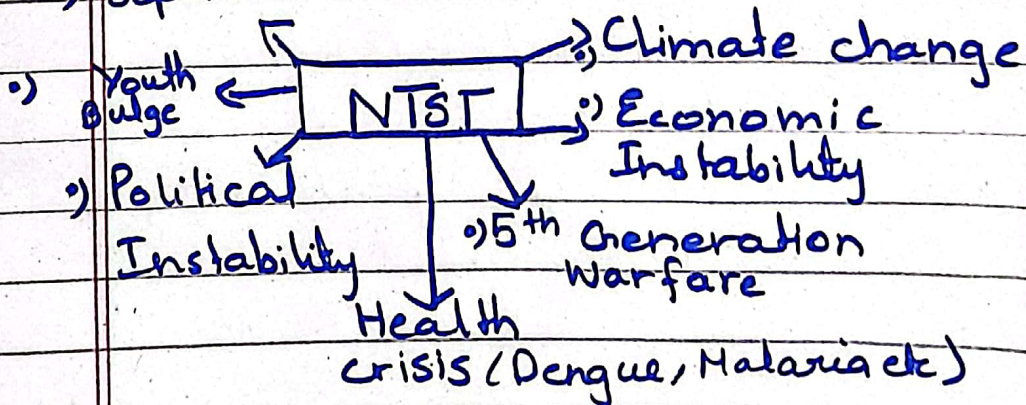 •) Climate change
•) Youth
Bulge
NTST
•) Economic
Instability
•) Political
Instability
•) 5th Generation
Warfare
Health
crisis (Dengue, Malaria etc)